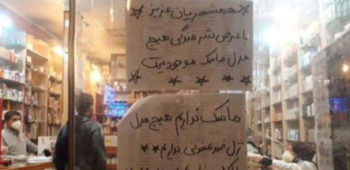 * همشهریان عزیز *
با عرض شرمندگی هیچ
مدل ماسک موجود نیست
* *
ماسک نداریم هیچ مدل
ژل ضدعفونی نداریم
* *